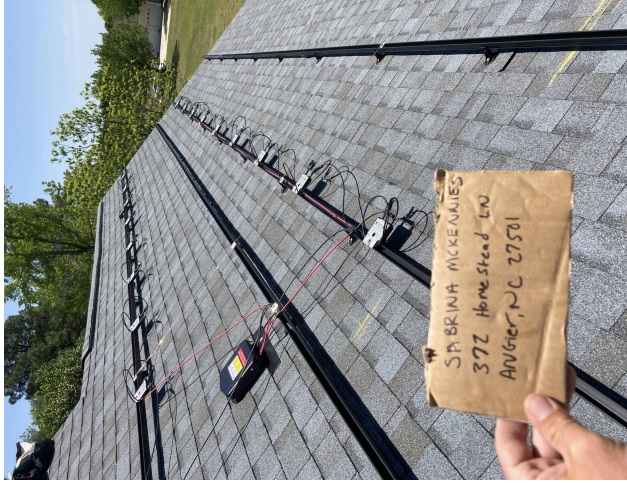 SABRINA MCKENNIES
372 Homestead LN
ANGier, NC 27501